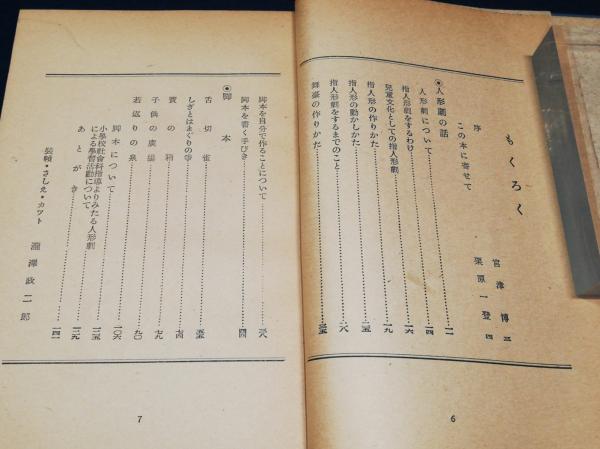 もくろく
序 宮津博 三
この本に寄せて 栗原一登 四
◉人形劇の話
人形劇について 一一
指人形劇をするわけ 一四
児童文化としての指人形劇 一六
指人形の作りかた 一九
指人形の動かしかた 二五
指人形劇をするまでのこと 二八
舞臺の作りかた
脚本を自分で作ることについて 三八
脚本を書く手びき 四四
◉脚本
舌切雀
しぎとはまぐりの爭
寶の箱 七四
子供の廣場 七九
若返りの泉 九〇
脚本について 一〇六
小學校社會科指導よりみたる人形劇
による學習活動について 一二五
あとがき 一三九
裝幀・さしえ・カット 瀧澤政二郎 一四一
6
7